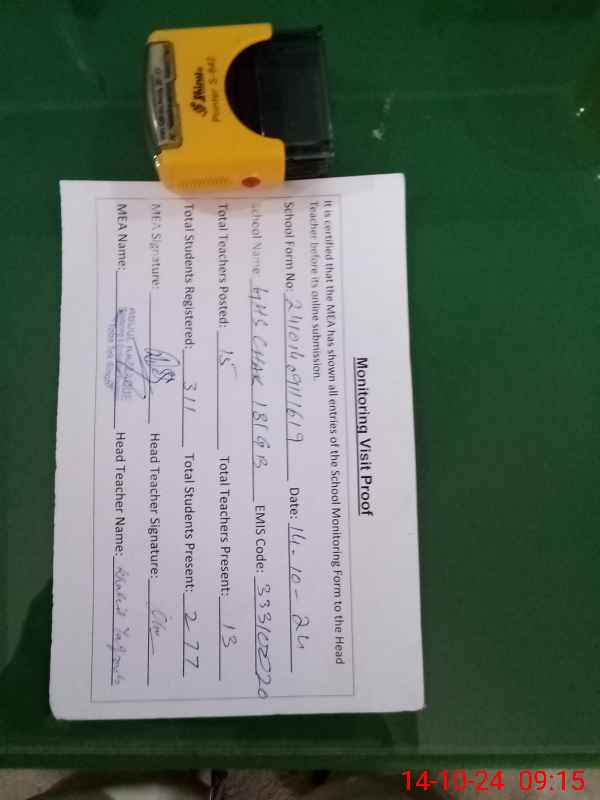 Monitoring Visit Proof
It is certified that the MEA has shown all entries of the School Monitoring Form to the Head
Teacher before its online submission.
School Form No: 24101409111619 Date: 14-10-24
School Name: GHS CHAK 181 GB EMIS Code: 33310020
Total Teachers Posted: 15 Total Teachers Present: 13
Total Students Registered: 311 Total Students Present: 277
MEA Signature: Head Teacher Signature:
MEA Name: Head Teacher Name: Khalid
Shiny
Printer S-842
14-10-24 09:15